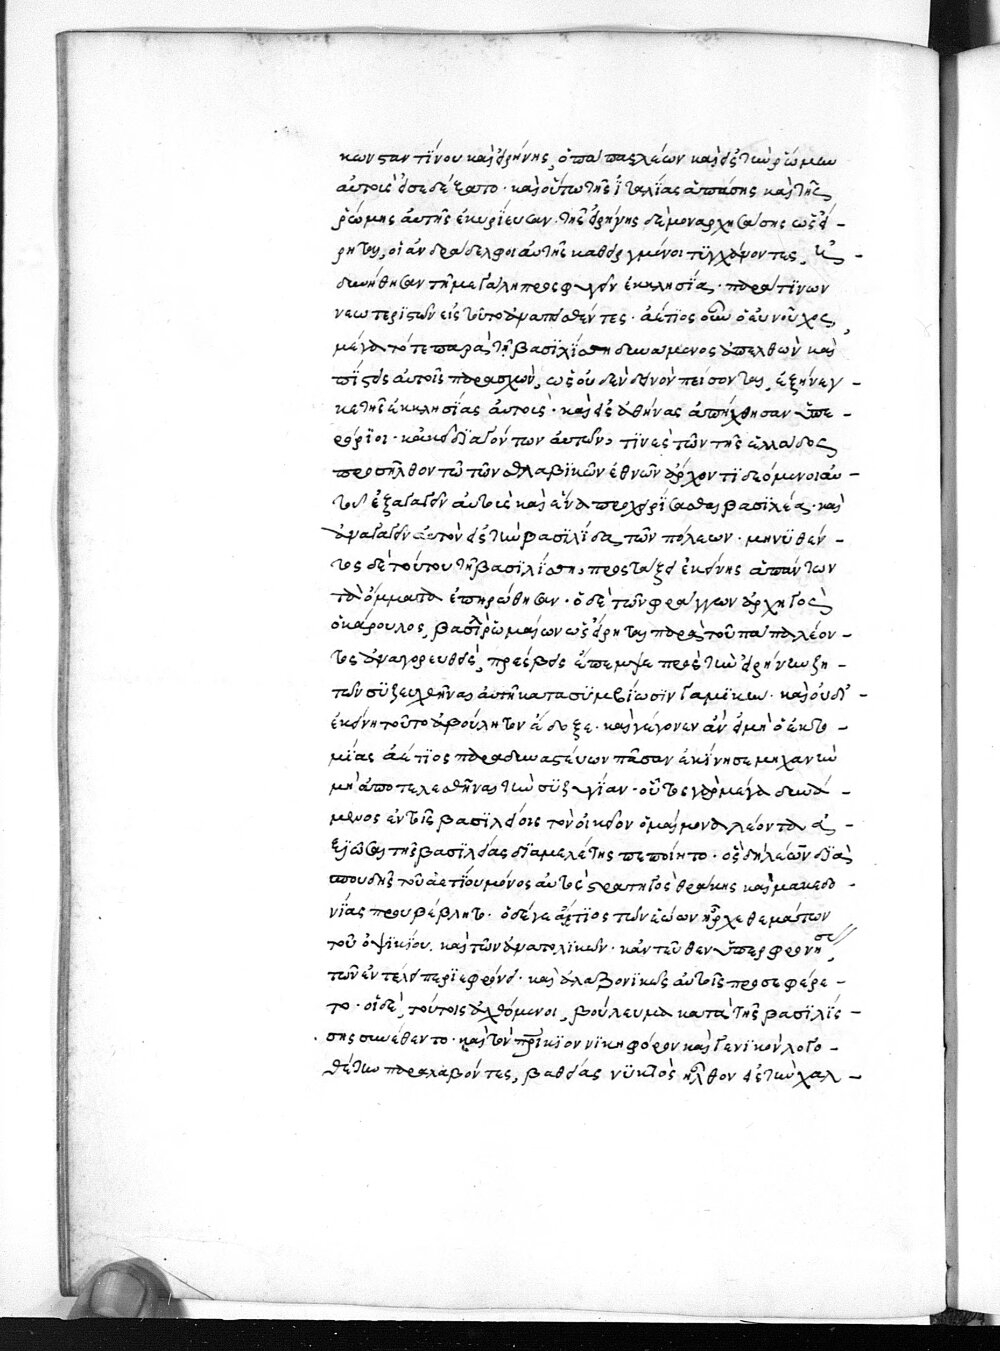 κωνσταντίνου καὶ εἰρήνης, ὁ πάπας λέων καὶ εἰς τὴν ῥώμην
αὐτοὺς εἰσεδέξατο· καὶ οὕτω τῆς ἰταλίας ἁπάσης καὶ τῆς
ῥώμης αὐτῆς ἐκυρίευσαν· τῆς εἰρήνης δὲ μοναρχησάσης ὡς εἴ-
ρηται, οἱ ἀνδράδελφοι αὐτῆς καθειργμένοι τυγχάνοντες,
ἠθησαν τῇ μεγάλῃ προσφυγεῖν ἐκκλησίᾳ· παρά τινων
νεωτεριστῶν εἰς τοῦτο ἀναπεισθέντες· ἀέτιος οὖν ὁ εὐνοῦχος,
μέγα τότε παρὰ τῇ βασιλίσσῃ δυνάμενος ἀπελθὼν καὶ
πίστεις αὐτοῖς παρασχὼν, ὡς οὐδὲν δεινὸν πείσονται, ἐξήνεγ-
κε τῆς ἐκκλησίας αὐτούς· καὶ εἰς ἀθήνας ἀπήχθησαν ὑπε-
ρόριοι· κἀκεῖ διαγόντων αὐτῶν, τινὲς τῶν τῆς ἑλλάδος
προσῆλθον τῷ τῶν σθλαβικῶν ἐθνῶν ἄρχοντι δεόμενοι αὐ-
τοῦ ἐξαγαγεῖν αὐτοὺς καὶ ἕνα προχειρίσασθαι βασιλέα· καὶ
ἀναγαγεῖν αὐτὸν εἰς τὴν βασιλίδα τῶν πόλεων· μηνυθέν-
τος δὲ τούτου τῇ βασιλίσσῃ, προστάξει ἐκείνης ἁπάντων
τὰ ὄμματα ἐπηρώθησαν· ὁ δὲ τῶν φράγγων ἀρχηγὸς
ὁ κάρουλος, βασιλεὺς ῥωμαίων ὡς εἴρηται παρὰ τοῦ πάπα λέον-
τος ἀναγορευθεὶς, πρέσβεις ἔπεμψε πρὸς τὴν εἰρήνην ζη-
τῶν συζευχθῆναι αὐτῇ κατὰ συμβίωσιν γαμικήν· καὶ οὐδ'
ἐκείνῃ τοῦτο ἀβούλητον ἔδοξε· καὶ γέγονεν ἂν εἰ μὴ ὁ ἐκτο-
μίας ἀέτιος παραδυναστεύων πᾶσαν ἐκίνησε μηχανὴν
μὴ ἀποτελεσθῆναι τὴν συζυγίαν· οὗτος γὰρ μέγα δυνά-
μενος ἐν τοῖς βασιλείοις τὸν οἰκεῖον ὁμαίμονα λέοντα ἀ-
ξιῶσαι τῆς βασιλείας διὰ μελέτης πεποίητο· ὃς δὴ λέων διὰ
σπουδῆς τοῦ ἀετίου μόνος αὐτὸς στρατηγὸς θράκης καὶ μακεδο-
νίας προυβέβλητο· ὁ δέ γε ἀέτιος τῶν ἑῴων ἦρχε θεμάτων
τοῦ ὀψικίου, καὶ τῶν ἀνατολικῶν· κἀντεῦθεν ὑπερφρονήσας
τῶν ἐν τέλει περιεφρόνει· καὶ ἀλαζονικῶς αὐτοῖς προσεφέρε-
το· οἱ δὲ, τούτοις ἀχθόμενοι, βούλευμα κατὰ τῆς βασιλίσ-
σης συνέθεντο· καὶ τὸν πατρίκιον νικηφόρον καὶ γενικὸν λογο-
θέτην παραλαβόντες, βαθείας νυκτὸς ἦλθον εἰς τὴν χαλ-